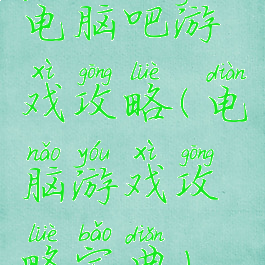 电脑吧游
xì gōng lüè diàn
戏攻略(电
nǎo yóu xì gōng
脑游戏攻
lüè bǎo diǎn
略宝典)